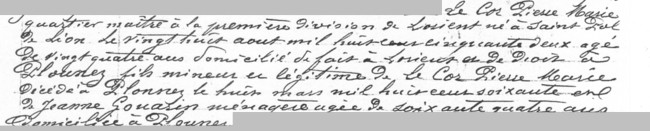 Le Coz Pierre Marie
quartier maître à la première division de Lorient né à Saint Pol
de Léon le vingt huit aout mil huit cent cinquante deux agé
de vingt quatre ans domicilié de fait à Lorient et de Droit à
Plounez fils mineur et légitime de Le Coz Pierre Marie
décédé à Plounez le huit mars mil huit cent soixante et
de Jeanne Couazin ménagère agée de soixante quatre ans
domiciliée à Plounez